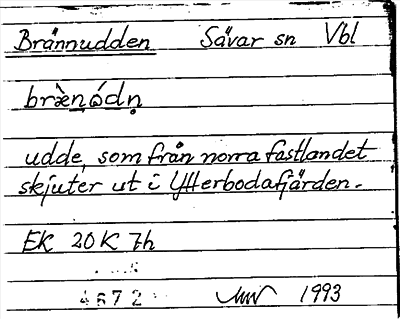 Brännudden Sävar sn Vbl
bræ̀nọ́dṇ
udde, som från norra fastlandet
skjuter ut i Ytterbodafjärden.
EK 20K 7h
4672
1993